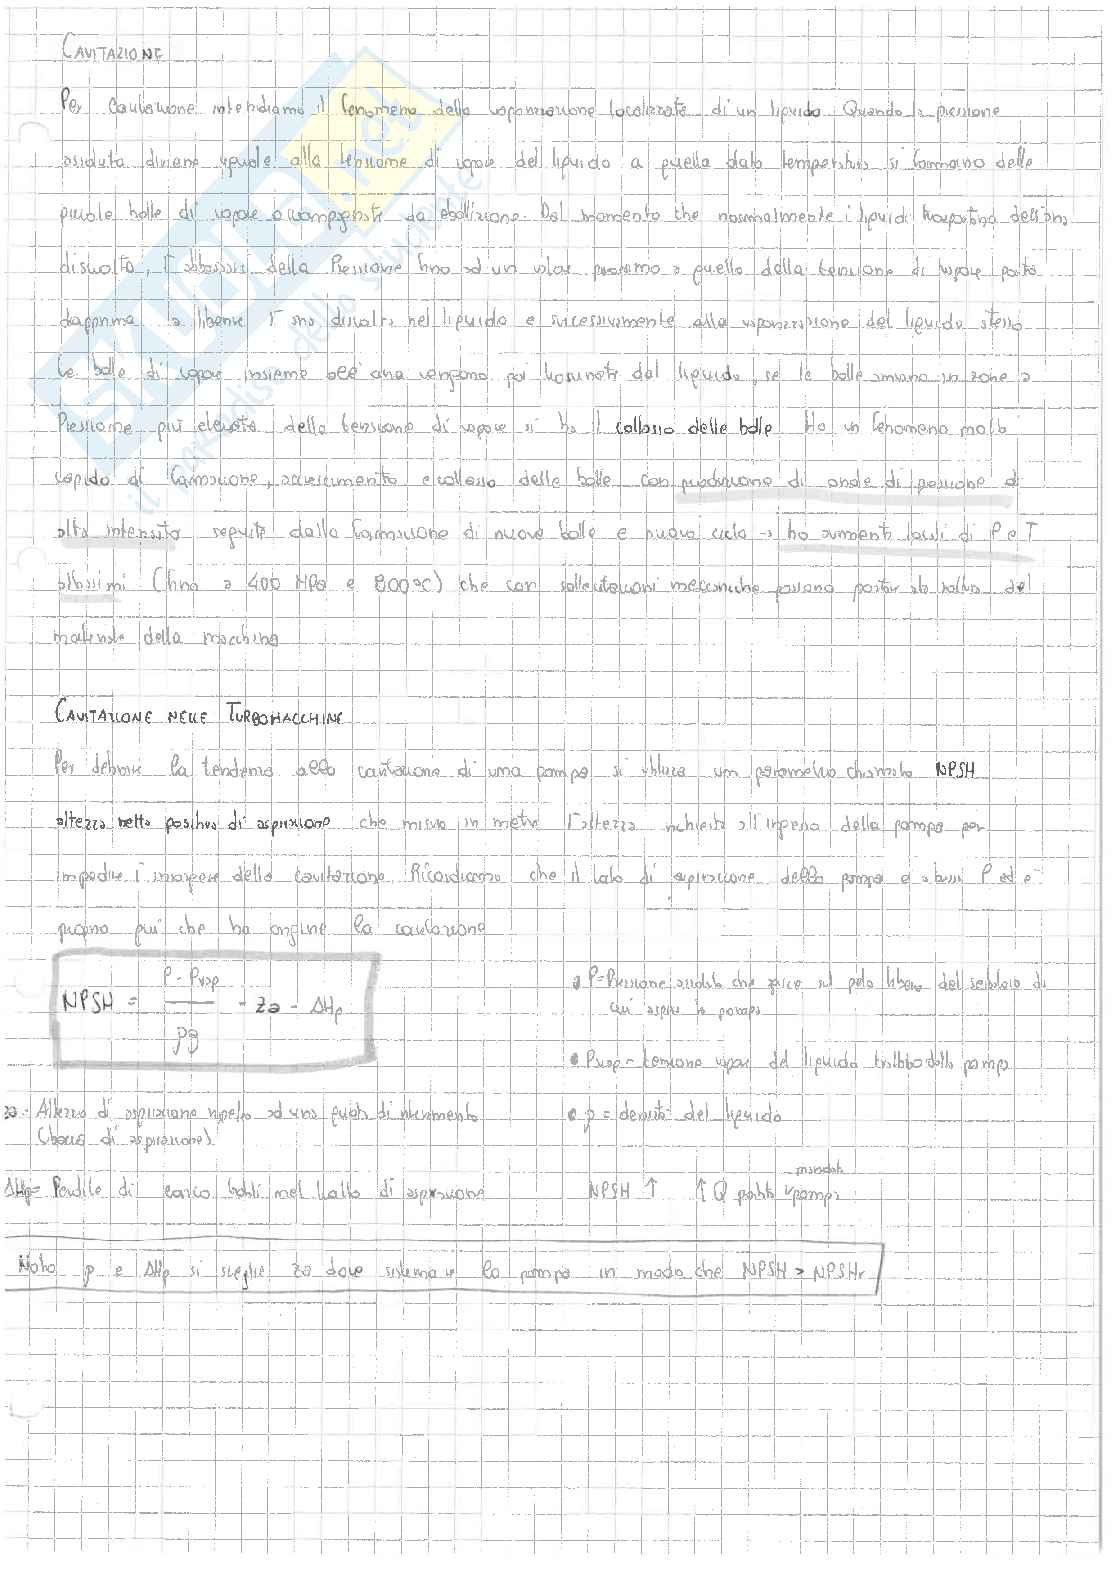 CAVITAZIONE
Per cavitazione intendiamo il fenomeno della vaporizzazione localizzata di un liquido. Quando la pressione
assoluta diviene uguale alla tensione di vapore del liquido a quella data temperatura si formano delle
piccole bolle di vapore accompagnate da ebollizione. Dal momento che normalmente i liquidi trasportano dell'aria
disciolta, l'abbassarsi della Pressione fino ad un valore prossimo a quello della tensione di vapore porta
dapprima a liberare l'aria disciolta nel liquido e successivamente alla vaporizzazione del liquido stesso
Le bolle di vapore insieme all'aria vengono poi trascinate dal liquido, se le bolle arrivano in zone a
Pressione più elevata della tensione di vapore si ha il collasso delle bolle. Ho un fenomeno molto
rapido di formazione, accrescimento e collasso delle bolle con produzione di onde di pressione di
alta intensità seguite dalla formazione di nuove bolle e nuovo ciclo → ho aumenti locali di P e T
altissimi (fino a 400 MPa e 800°C) che con sollecitazioni meccaniche possono portare alla rottura del
materiale della macchina
CAVITAZIONE NELLE TURBOMACCHINE
Per definire la tendenza alla cavitazione di una pompa si utilizza un parametro chiamato NPSH
altezza netta positiva di aspirazione che misura in metri l'altezza richiesta all'ingresso della pompa per
impedire l'insorgere della cavitazione. Ricordiamo che il lato di aspirazione della pompa è a bassi P ed è
proprio qui che ha origine la cavitazione
NPSH = P - Pvap / ρg - za - ΔHp
• P = Pressione assoluta che agisce sul pelo libero del serbatoio di
cui aspira la pompa
• Pvap = tensione vapore del liquido trattato dalla pompa
za = Altezza di aspirazione rispetto ad una quota di riferimento
(bocca di aspirazione)
• ρ = densità del liquido
ΔHp = Perdite di carico totali nel tratto di aspirazione
NPSH ↑ ↑ Q portata mandata pompa
Noto p e ΔHp si sceglie za dove sistemare la pompa in modo che NPSH > NPSHr